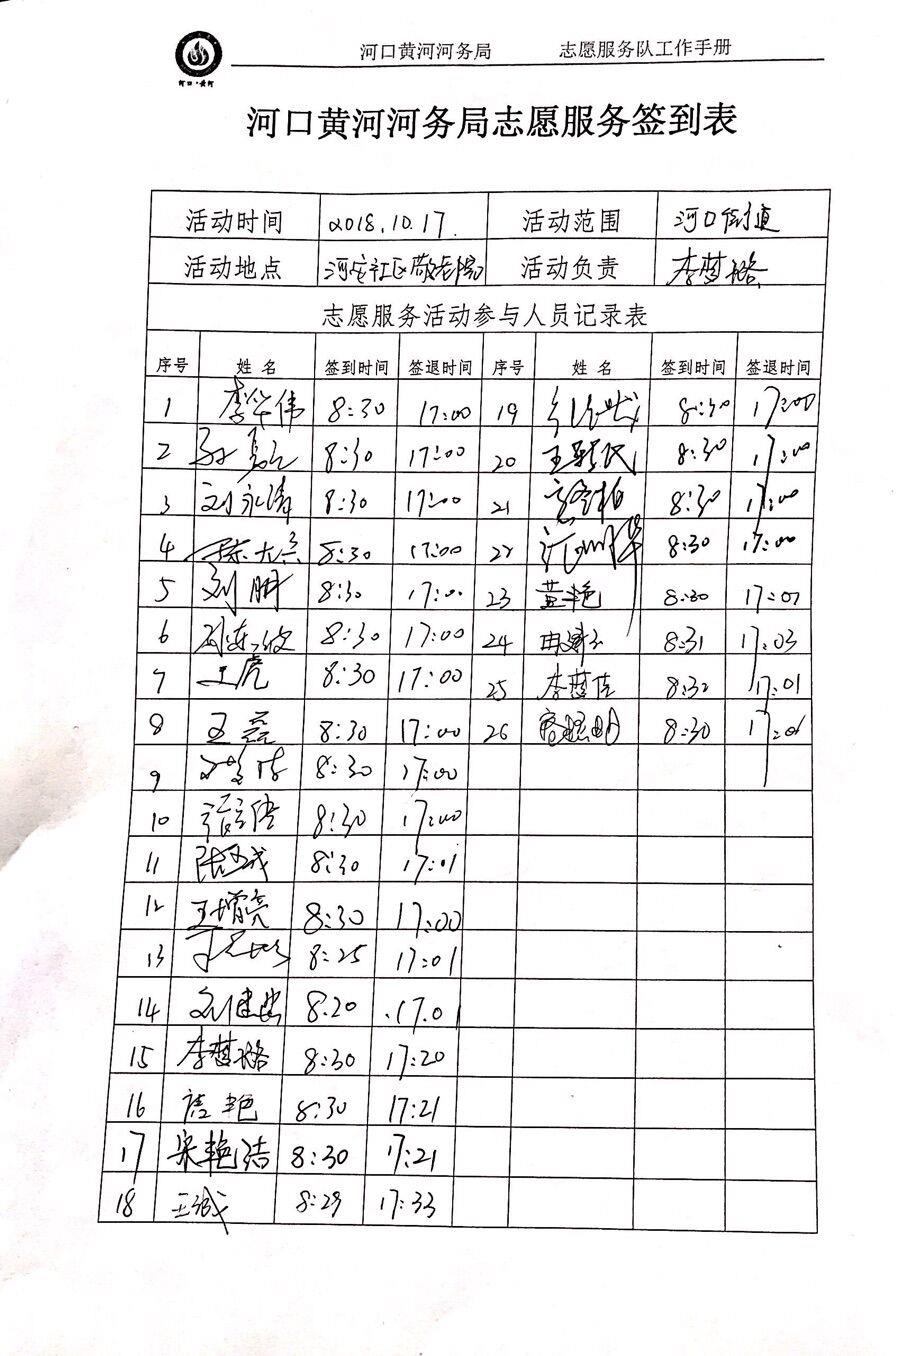 河口·黄河
河口黄河河务局 志愿服务队工作手册
河口黄河河务局志愿服务签到表
活动时间 2018.10.17. 活动范围 河口街道
活动地点 河安社区敬老院 活动负责 李梦璐
志愿服务活动参与人员记录表
序号 姓名 签到时间 签退时间 序号 姓名 签到时间 签退时间
1 李华伟 8:30 17:00 19 8:30 17:00
2 8:30 17:00 20 8:30 17:00
3 刘永涛 8:30 17:00 21 8:30 17:00
4 8:30 17:00 22 8:30 17:00
5 刘鹏 8:30 17:00 23 黄艳 8:30 17:07
6 8:30 17:00 24 8:31 17:03
7 王虎 8:30 17:00 25 8:32 17:01
8 王磊 8:30 17:00 26 8:30 17:06
9 8:30 17:00
10 8:30 17:00
11 8:30 17:01
12 王增亮 8:30 17:00
13 8:25 17:01
14 8:20 17:01
15 李梦璐 8:30 17:20
16 唐艳 8:30 17:21
17 宋艳洁 8:30 17:21
18 王诚 8:29 17:33